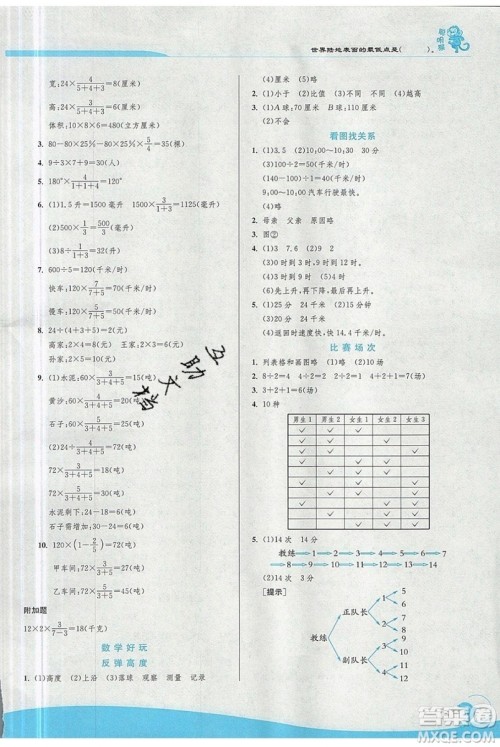 世界陆地表面的最低点是(　　)。
宽:24×4/(5+4+3)=8(厘米)
高:24×3/(5+4+3)=6(厘米)
体积:10×8×6=480(立方厘米)
3. 80-80×25%-80×5/4=…
4. 9÷3×7+9=30(人)
5. 180°×4/(1+1+4)=120°
6. (1)1.5升=1500毫升　1500×1/(1+3)=…
(2)500×1/3=500/3(毫升)
(3)8÷1/3=24(升)
7. 600÷5=120(千米/时)
快车:120×7/(7+5)=70(千米/时)
慢车:120×5/(7+5)=50(千米/时)
8. 24÷(4+3+5)=2(元)
高家:2×4=8(元)　王家:2×3=6(元)
孙家:2×5=10(元)
9. (1)水泥:60×3/(3+4+5)=15(吨)
黄沙:60×4/(3+4+5)=20(吨)
石子:60×5/(3+4+5)=25(吨)
(2)24÷4/(3+4+5)=72(吨)
72×3/(3+4+5)=18(吨)
72×5/(3+4+5)=30(吨)
水泥剩下:24-18=6(吨)
石子需增加:30-24=6(吨)
10. 120×(1-2/5)=72(个)
甲车间:72×3/(3+5)=27(个)
乙车间:72×5/(3+5)=45(个)
附加题
12×2×3/(7-3)=18(千克)
数学好玩
反弹高度
1. (1)高度　(2)上沿　(3)落球　观察　测量　记录
(4)厘米　(5)略
2. (1)小于　(2)比值　(3)不相同　(4)越高
3. (1)A球:70厘米　B球:110厘米
(2)不会
看图找关系
1. (1)3.5　(2)10:00~10:30　30分
(3)100÷2=50(千米/时)
(4)140÷1=140(千米/时)
9:00~10:00汽车行驶最快。
(4)略
2. 母亲　父亲　原因略
3. 图②
4. (1)3　7.6　(2)9　略
(3)7.2÷0.5=14.4(千米/时)
(4)先上升,再下降,后上升。
5. (1)25分　24分　(2)10分钟
(3)先慢后快　14.4千米/时。
比赛场次
1. 列表格和画图略　(1)略　(2)略
2. 8÷2=4　4÷2=2　2÷2=1
3. 3+2+1=6(场)
4. 10种
男生1　男生2　女生1　女生2　女生3
✓　✓
✓　✓
✓　✓
✓　✓
✓　✓
✓　✓
✓　✓
✓　✓
✓　✓
✓　✓
5. (1)14次　14分
教练→1→2→3→4→5→6→7
14←13←12←11←10←9←8
(2)14次　3分
[提示]
教练　正队长　副队长
1　5
2　6
3　7
4　8
互助文档
答案圈
MXQE.COM